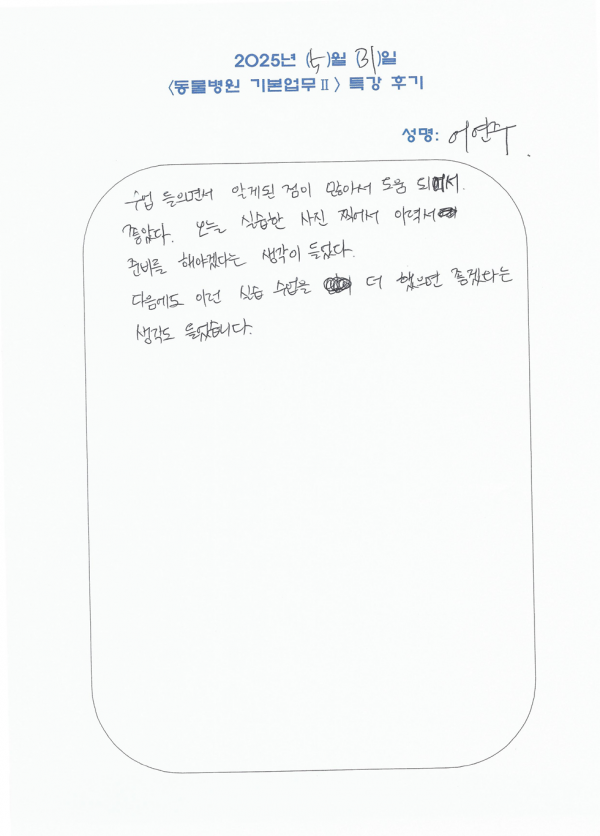 2025년 (5)월 (31)일
<동물병원 기본업무Ⅱ> 특강 후기
성명: 어연수
수업 들으면서 알게된 점이 많아서 도움 되어서.
좋았다. 오늘 실습한 사진 찍어서 이력서
준비를 해야겠다는 생각이 들었다.
다음에도 이런 실습 수업을 더 했으면 좋겠다는
생각도 들었습니다.